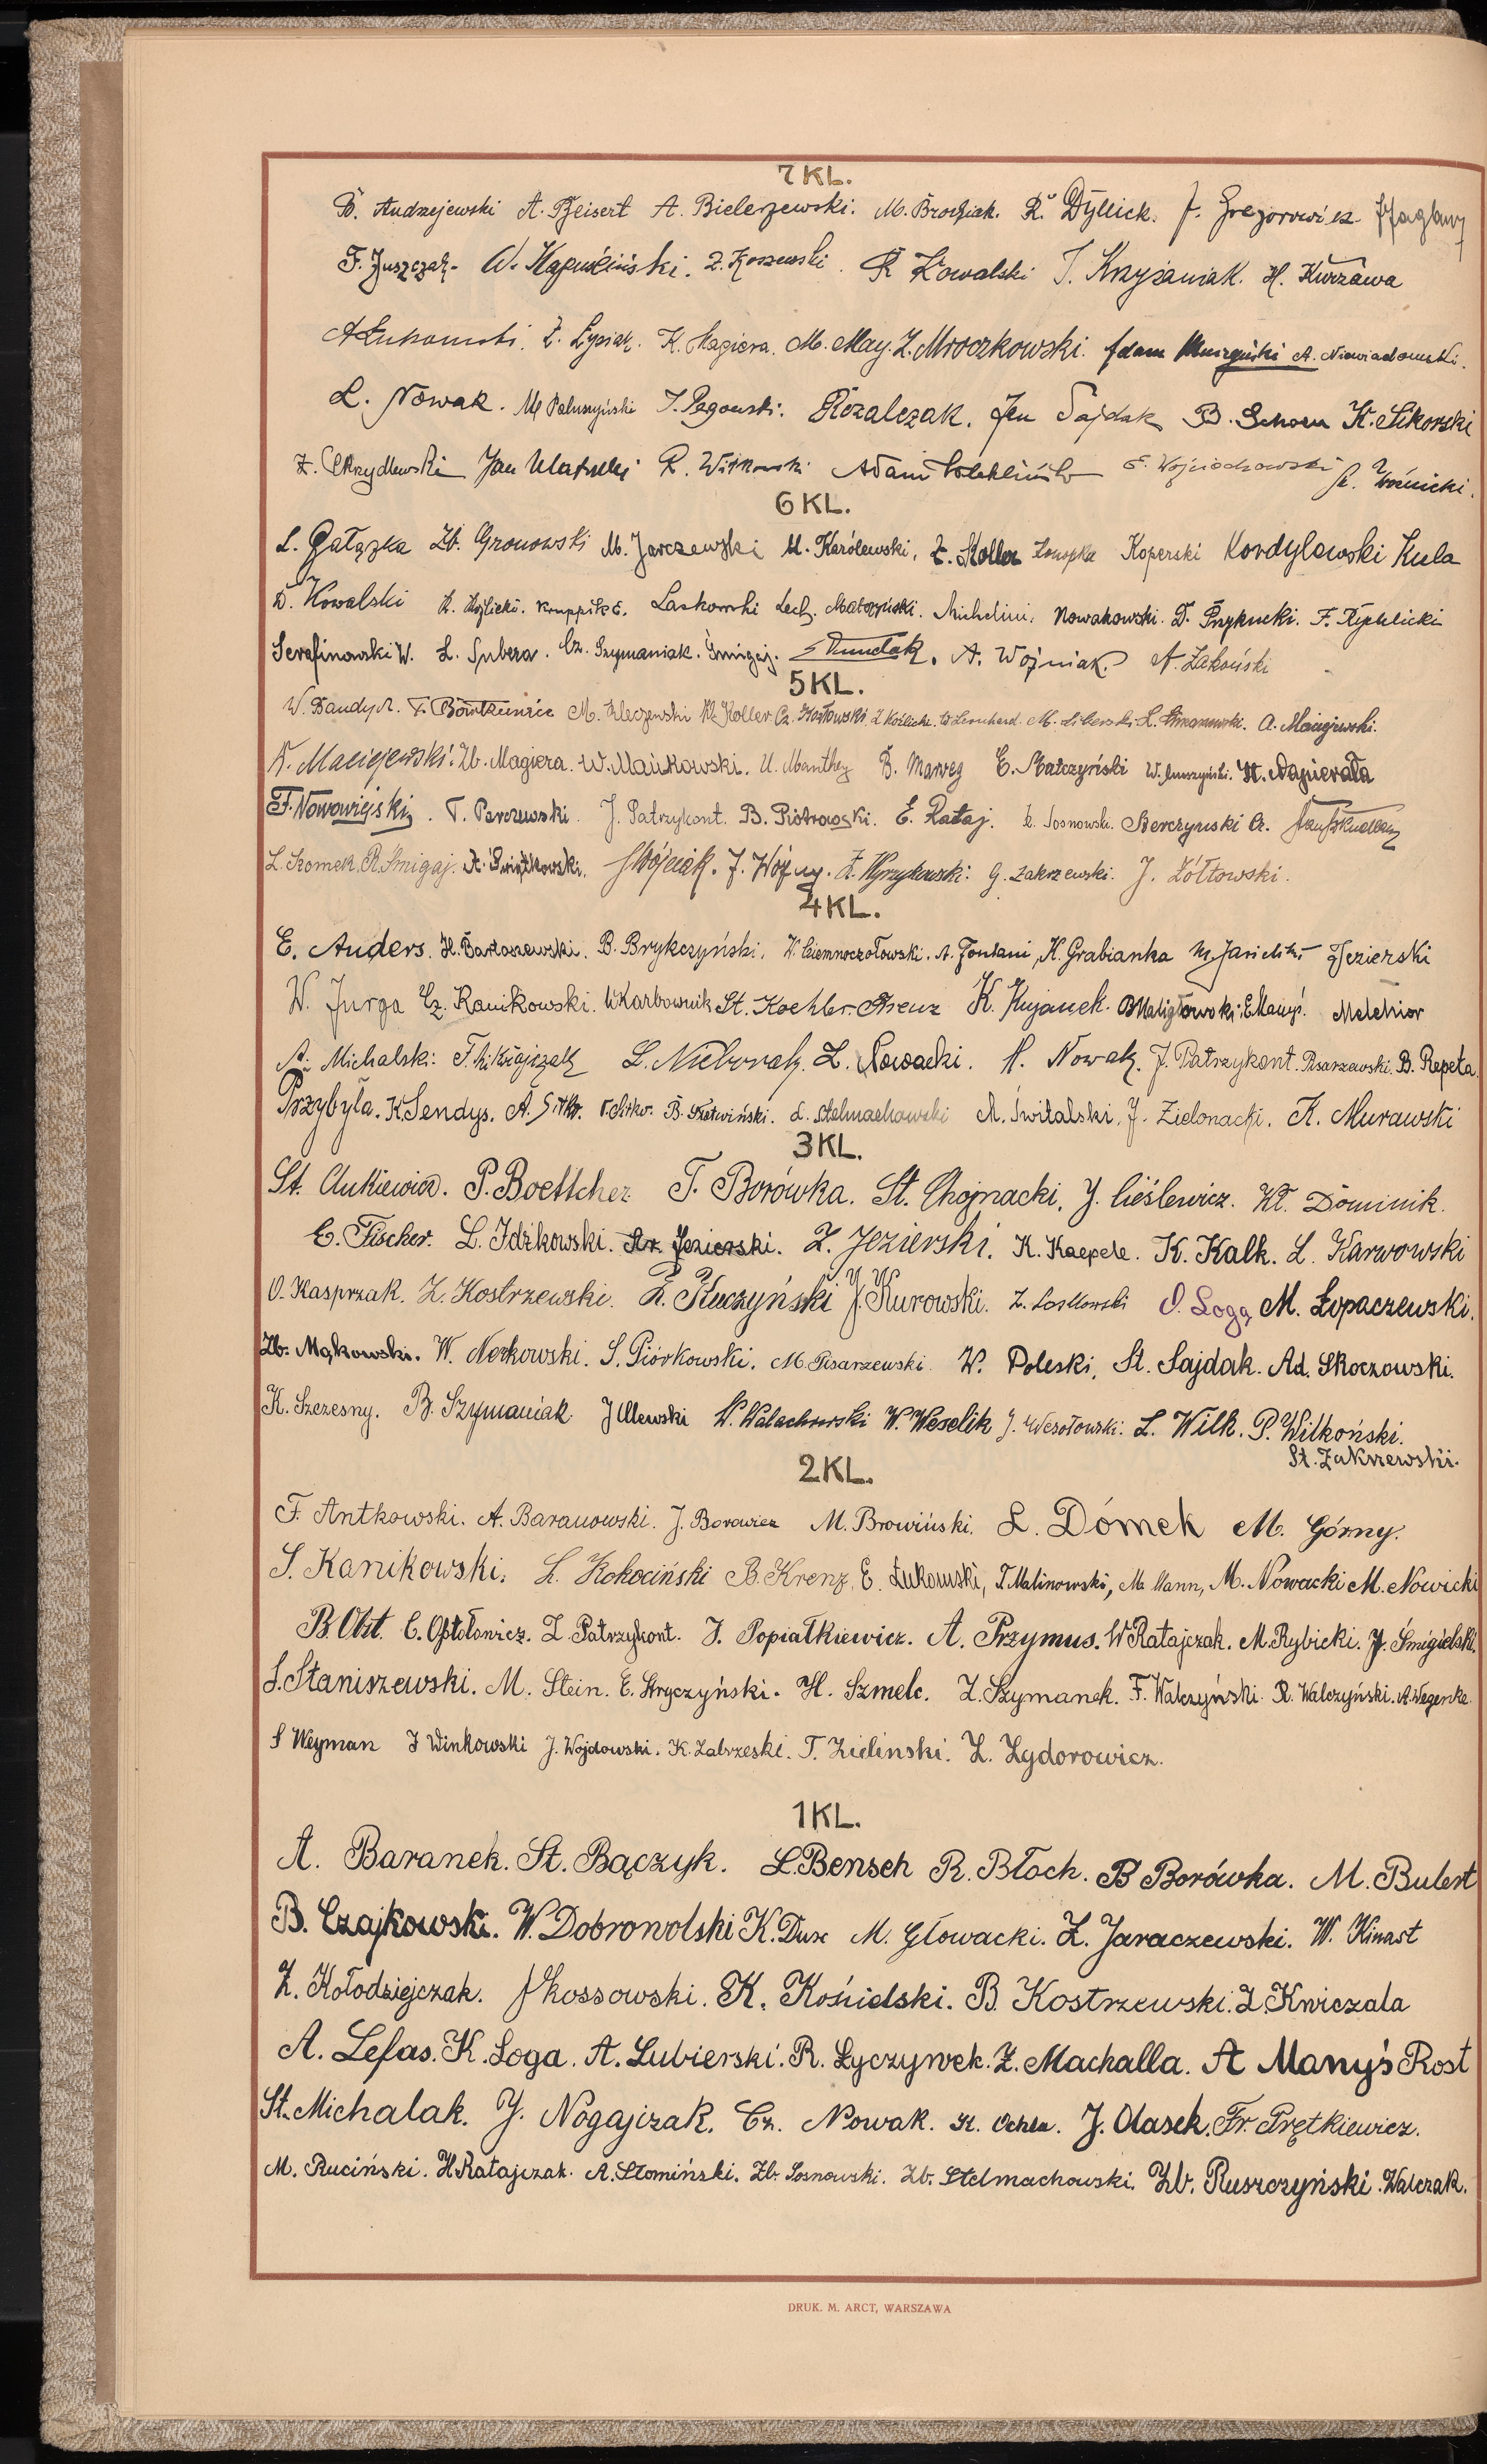 7 KL.
B. Andrzejewski A. Beisert A. Bielerzewski. M. Brodziak. R. Dyllick. F. Gregorowicz
F. Juszczak. W. Kapuściński. Z. Koszewski. R Kowalski T. Krzyżaniak. H. Kurzawa
A Łukomski. Z. Łysiak. K. Magiera. M. May. Z. Mroczkowski. Adam A. Niewiadomski.
L. Nowak. M Paluszyński T. Rozalczak. Jan Sajdak B. Schoen K. Sikorski
Z. Skrzydlewski Jan R. Witkowski Adam E. Wojciechowski R. Woźnicki.
6 KL.
L. Gałązka Zb. Gronowski M. Jarczewski M. Karólewski, Z. Koller Konopka Koperski Kordylewski Kula
D. Kowalski K. Kruppik E. Laskowski Lech. Matczyński. Michelini. Nowakowski. T. Przykucki. F. Rychlicki
Serafinowski W. L. Subera. Cz. Szymaniak. Śmigaj. A. Woźniak. A. Zakoński
5 KL.
W. Bandych. T. M. Kleczewski Kl. Koller Cz. Kosłowski Z Koźlicki. W Leonhard. M. Liberski L. A. Maciejewski.
K. Maciejewski. Zb. Magiera. W. Mańkowski. U. Manthey B. Marweg E. Matczyński W. Muszyński. H. Napierała
F. Nowowiejski. T. Parczewski. J. Patrzykont. B. Piotrowski. E. Rataj. Z. Sosnowski. Skerczyński Cz.
L. Szomek. R. Śmigaj. A. Świątkowski. J Wójciak. J. Wójcy. Z. Wyrzykowski. G. Zakrzewski. J. Żółtowski.
4 KL.
E. Anders. H. Bartoszewski. B. Brykczyński. W. Ciemnoczołowski. A. Fontani, H. Grabianka M. Jasielski Jezierski
W. Jurga Cz. Kanikowski. W Karbownik St. Koehler. Krenz K. Kujanek. B Maligłowski. E Manyś. Melchior
A. Michalski. F. Mikołajczak L. Nieborak. L. Nowacki. H. Nowak. J. Patrzykont. Pisarzewski. B. Repeta.
Przybyła. K. Sendys. A. Sitko. T. Sitko. B. Skotwiński. L. Stelmachowski A. Świtalski. J. Zielonacki. K. Murawski
3 KL.
St. Ankiewicz. P. Boettcher T. Borówka. St. Chojnacki, J. Cieślewicz. Kl. Dominik.
E. Fischer. L. Idzikowski. Ar. Jezierski. Z. Jezierski. K. Kaepele. K. Kalk. L. Karwowski
O. Kasprzak. Z. Kostrzewski. R. Kuczyński J. Kurowski. Z. Laskowski O. Loga M. Łopaczewski.
Zb. Mąkowski. W. Nerkowski. S. Piórkowski. M. Pisarzewski. W. Poleski. St. Sajdak. Ad. Skoczowski.
K. Szczesny. B. Szymaniak. J Ulewski W. Walachowski W. Weselik J. Wesołowski. L. Wilk. P. Wilkoński.
St. Zakrzewski.
2 KL.
F. Antkowski. A. Baranowski. J. Borowicz M. Browiński. L. Domek M. Górny.
S. Kanikowski. L. Kokociński B. Krenz, E. Łukomski, T. Malinowski, M. Mann, M. Nowacki M. Nowicki
B. Obst. C. Opłotowicz. Z. Patrzykont. J. Popiałkiewicz. A. Przymus. W Ratajczak. M. Rybicki. J. Śmigielski.
S. Staniszewski. M. Stein. E. Stryczyński. H. Szmelc. Z. Szymanek. F. Walczyński. R. Walczyński. A. Wegerke.
S Weyman I Winkowski J. Wojdowski. K. Zabrzeski. T. Zielinski. Z. Zydorowicz.
1 KL.
A. Baranek. St. Bączyk. L. Bensch R. Błoch. B Borówka. M. Bulert
B. Czajkowski. W. Dobrowolski K. Dux M. Głowacki. Z. Jaraczewski. W. Kinast
Z. Kołodziejczak. J Kossowski. K. Kośnielski. B. Kostrzewski. Z. Kwiczala
A. Lefas. K. Loga. A. Lubierski. R. Łyczywek. Z. Machalla. A Manyś Rost
St. Michalak. J. Nogajczak. Cz. Nowak. K. Ochla. J. Olasek. Fr. Prętkiewicz.
M. Ruciński. H. Ratajczak. A. Słomiński. Zb. Sosnowski. Zb. Stelmachowski. Zb. Ruszczyński. Walczak.
DRUK. M. ARCT, WARSZAWA